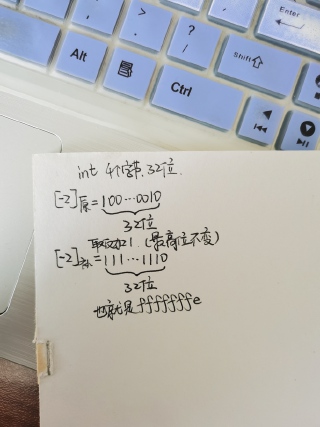 Enter
> .
? /
Shift
Alt
Ctrl
int 4个字节,32位.
[-2]原=100···0010
32位
取反加1.(最高位不变)
[-2]补=111···1110
32位
也就是fffffffe